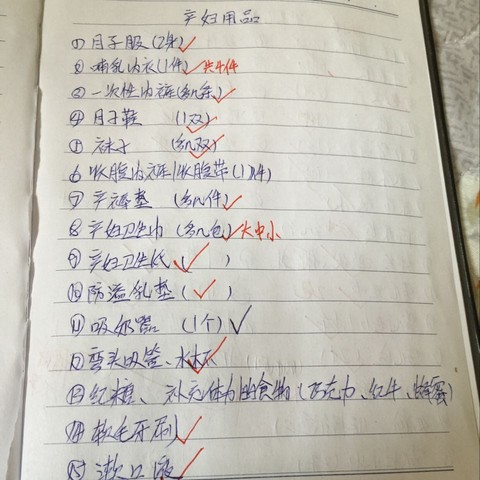 产妇用品
①月子服(2身)✓
②哺乳内衣(1件)✓共4件
③一次性内裤(幾条)✓
④月子鞋 (1双)✓
⑤袜子 (幾双)✓
⑥收腹内裤/收腹带(1件)
⑦产褥垫 (幾件)✓
⑧产妇卫生巾(幾包)✓大中小
⑨产妇卫生纸( )✓
⑩防溢乳垫( )✓
⑪吸奶器 (1个)✓
⑫弯头吸管、水杯✓
⑬红糖、补充体力的食物(巧克力、红牛、)
⑭软毛牙刷✓
⑮漱口液✓